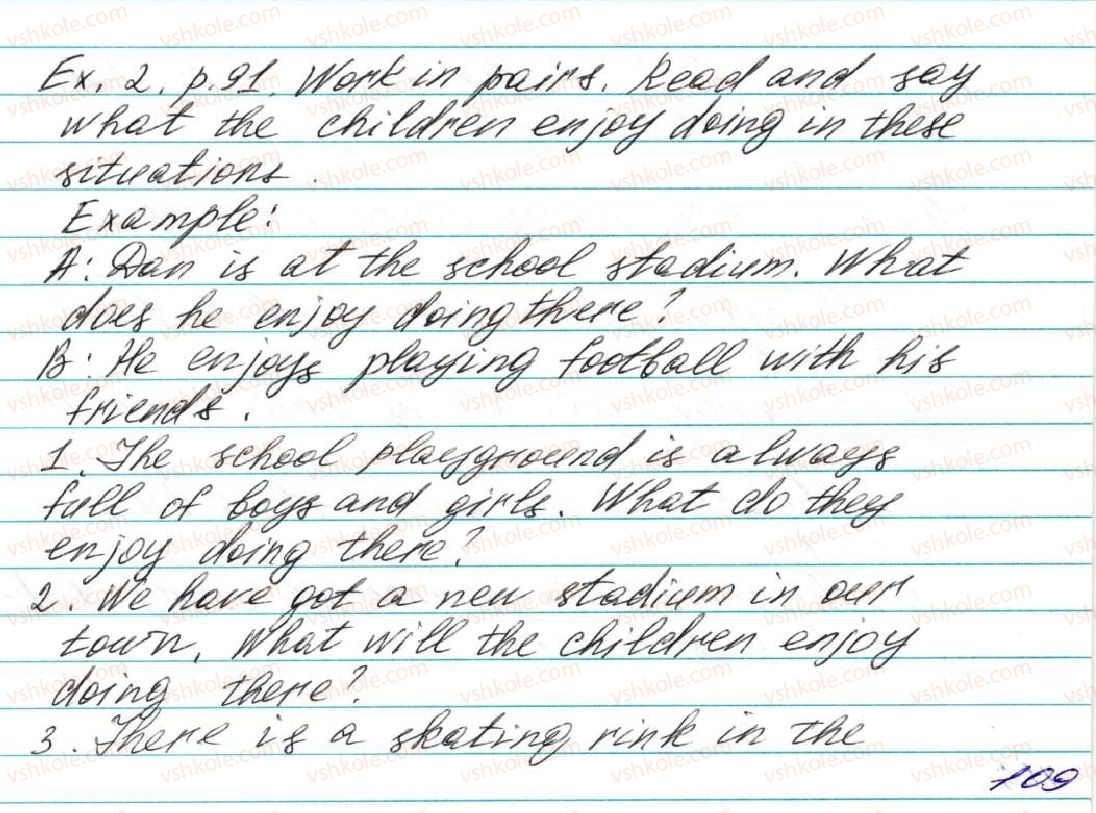 Ex. 2. p. 91. Work in pairs. Read and say
what the children enjoy doing in these
situations.
Example:
A: Dan is at the school stadium. What
does he enjoy doing there?
B: He enjoys playing football with his
friends.
1. The school playground is always
full of boys and girls. What do they
enjoy doing there?
2. We have got a new stadium in our
town. What will the children enjoy
doing there?
3. There is a skating rink in the
109
vshkole.com